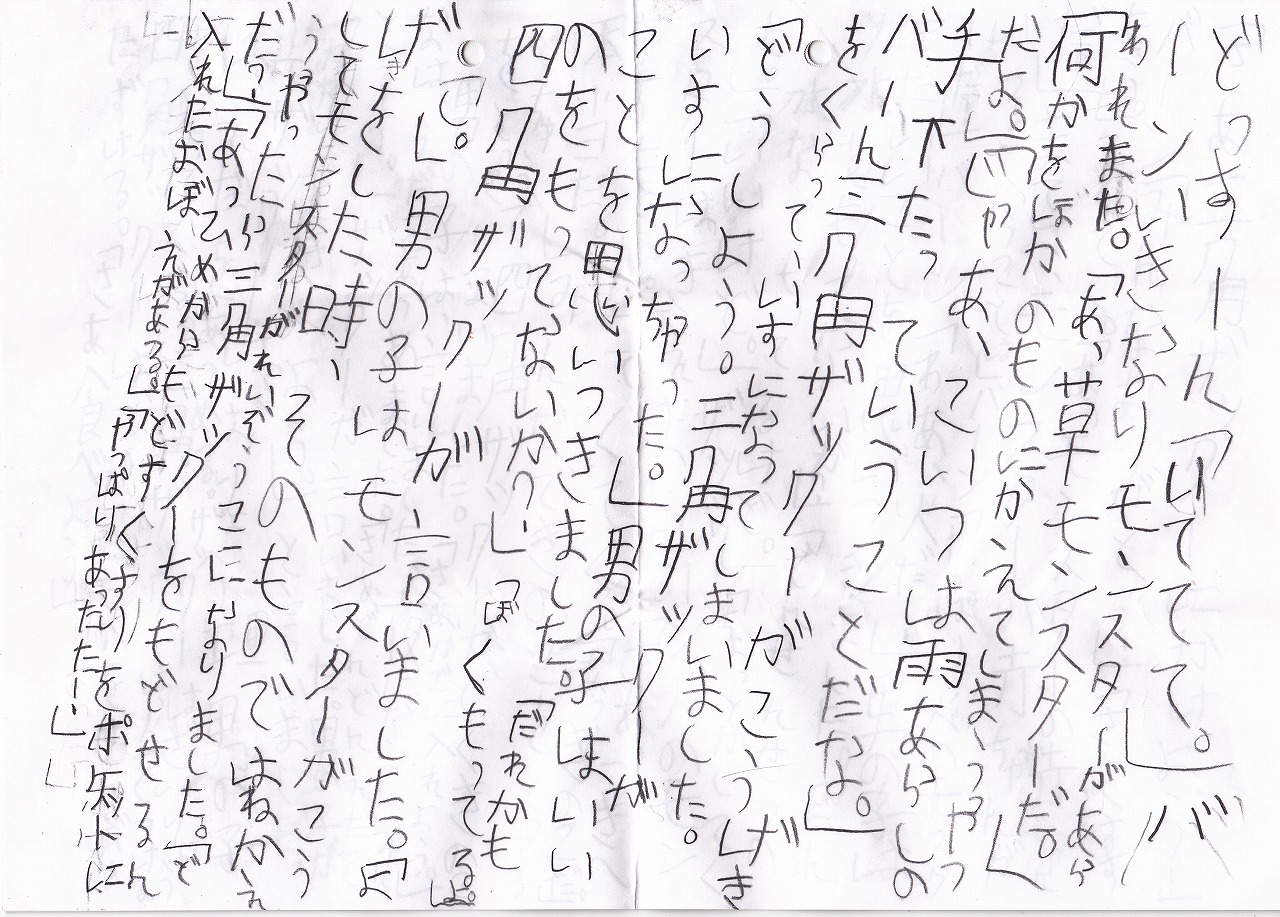 どっすーん「いてててて。」バ
ーン、いきなりモンスターがあら
われました。「あ、草モンスターだ。」
何かをほかのものにかえてしまうやつ
だよ。」「じゃあ、こいつは雨あらしの
バチ下たっていうことだなよ。」
バーん三角ザックーがこうげき
をくらっていすになってしまいました。
「どうしよう。三角ザックが
いすになっちゃった。」男の子はいい
ことを思いつきました。「だれかも
のをもってないか?」「ぼくもってるよ。
四角ザックーが、言いました。「よ
げて。」男の子はモンスターがこう
げしきをした時、そのものではねかえ
してモンスターがれいぞうこになりました。「ど
うやったら三角ザックーをもどせるん
だ。」「あっ、めがらもどすくすりをポケットに
入れたおぼえがある。」「やっぱりあったたー!」